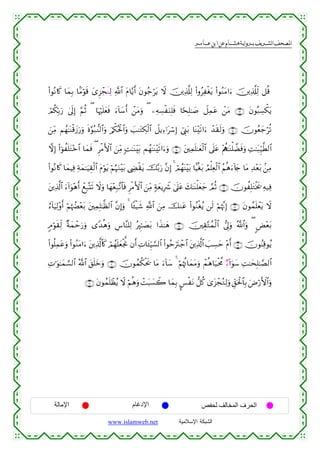 المصحف الشريف برواية هشام عن ابن عامر
قُل لِّلَّذِينَ ءَامَنُوا۟ يَغْفِرُوا۟ لِلَّذِينَ لَا يَرْجُونَ أَيَّامَ ٱللَّهِ لِنَجْزِىَ قَوْمًۢا بِمَا كَانُوا۟
يَكْسِبُونَ ۝ مَنْ عَمِلَ صَٰلِحًا فَلِنَفْسِهِۦ ۖ وَمَنْ أَسَآءَ فَعَلَيْهَا ۖ ثُمَّ إِلَىٰ رَبِّكُمْ
تُرْجَعُونَ ۝ وَلَقَدْ ءَاتَيْنَا بَنِىٓ إِسْرَٰٓءِيلَ ٱلْكِتَٰبَ وَٱلْحُكْمَ وَٱلنُّبُوَّةَ وَرَزَقْنَٰهُم مِّنَ
ٱلطَّيِّبَٰتِ وَفَضَّلْنَٰهُمْ عَلَى ٱلْعَٰلَمِينَ ۝ وَءَاتَيْنَٰهُم بَيِّنَٰتٍ مِّنَ ٱلْأَمْرِ ۖ فَمَا ٱخْتَلَفُوٓا۟ إِلَّا
مِنۢ بَعْدِ مَا جَآءَهُمُ ٱلْعِلْمُ بَغْيًۢا بَيْنَهُمْ ۚ إِنَّ رَبَّكَ يَقْضِى بَيْنَهُمْ يَوْمَ ٱلْقِيَٰمَةِ فِيمَا كَانُوا۟
فِيهِ يَخْتَلِفُونَ ۝ ثُمَّ جَعَلْنَٰكَ عَلَىٰ شَرِيعَةٍ مِّنَ ٱلْأَمْرِ فَٱتَّبِعْهَا وَلَا تَتَّبِعْ أَهْوَآءَ ٱلَّذِينَ
لَا يَعْلَمُونَ ۝ إِنَّهُمْ لَن يُغْنُوا۟ عَنكَ مِنَ ٱللَّهِ شَيْـًٔا ۚ وَإِنَّ ٱلظَّٰلِمِينَ بَعْضُهُمْ أَوْلِيَآءُ
بَعْضٍ ۖ وَٱللَّهُ وَلِىُّ ٱلْمُتَّقِينَ ۝ هَٰذَا بَصَٰٓئِرُ لِلنَّاسِ وَهُدًى وَرَحْمَةٌ لِّقَوْمٍ
يُوقِنُونَ ۝ أَمْ حَسِبَ ٱلَّذِينَ ٱجْتَرَحُوا۟ ٱلسَّيِّـَٔاتِ أَن نَّجْعَلَهُمْ كَٱلَّذِينَ ءَامَنُوا۟ وَعَمِلُوا۟
ٱلصَّٰلِحَٰتِ سَوَآءٌ مَّحْيَاهُمْ وَمَمَاتُهُمْ ۚ سَآءَ مَا يَحْكُمُونَ ۝ وَخَلَقَ ٱللَّهُ ٱلسَّمَٰوَٰتِ
وَٱلْأَرْضَ بِٱلْحَقِّ وَلِتُجْزَىٰ كُلُّ نَفْسٍۭ بِمَا كَسَبَتْ وَهُمْ لَا يُظْلَمُونَ ۝
الحرف المخالف لحفص الإدغام الإمالة
الشبكة الإسلامية www.islamweb.net